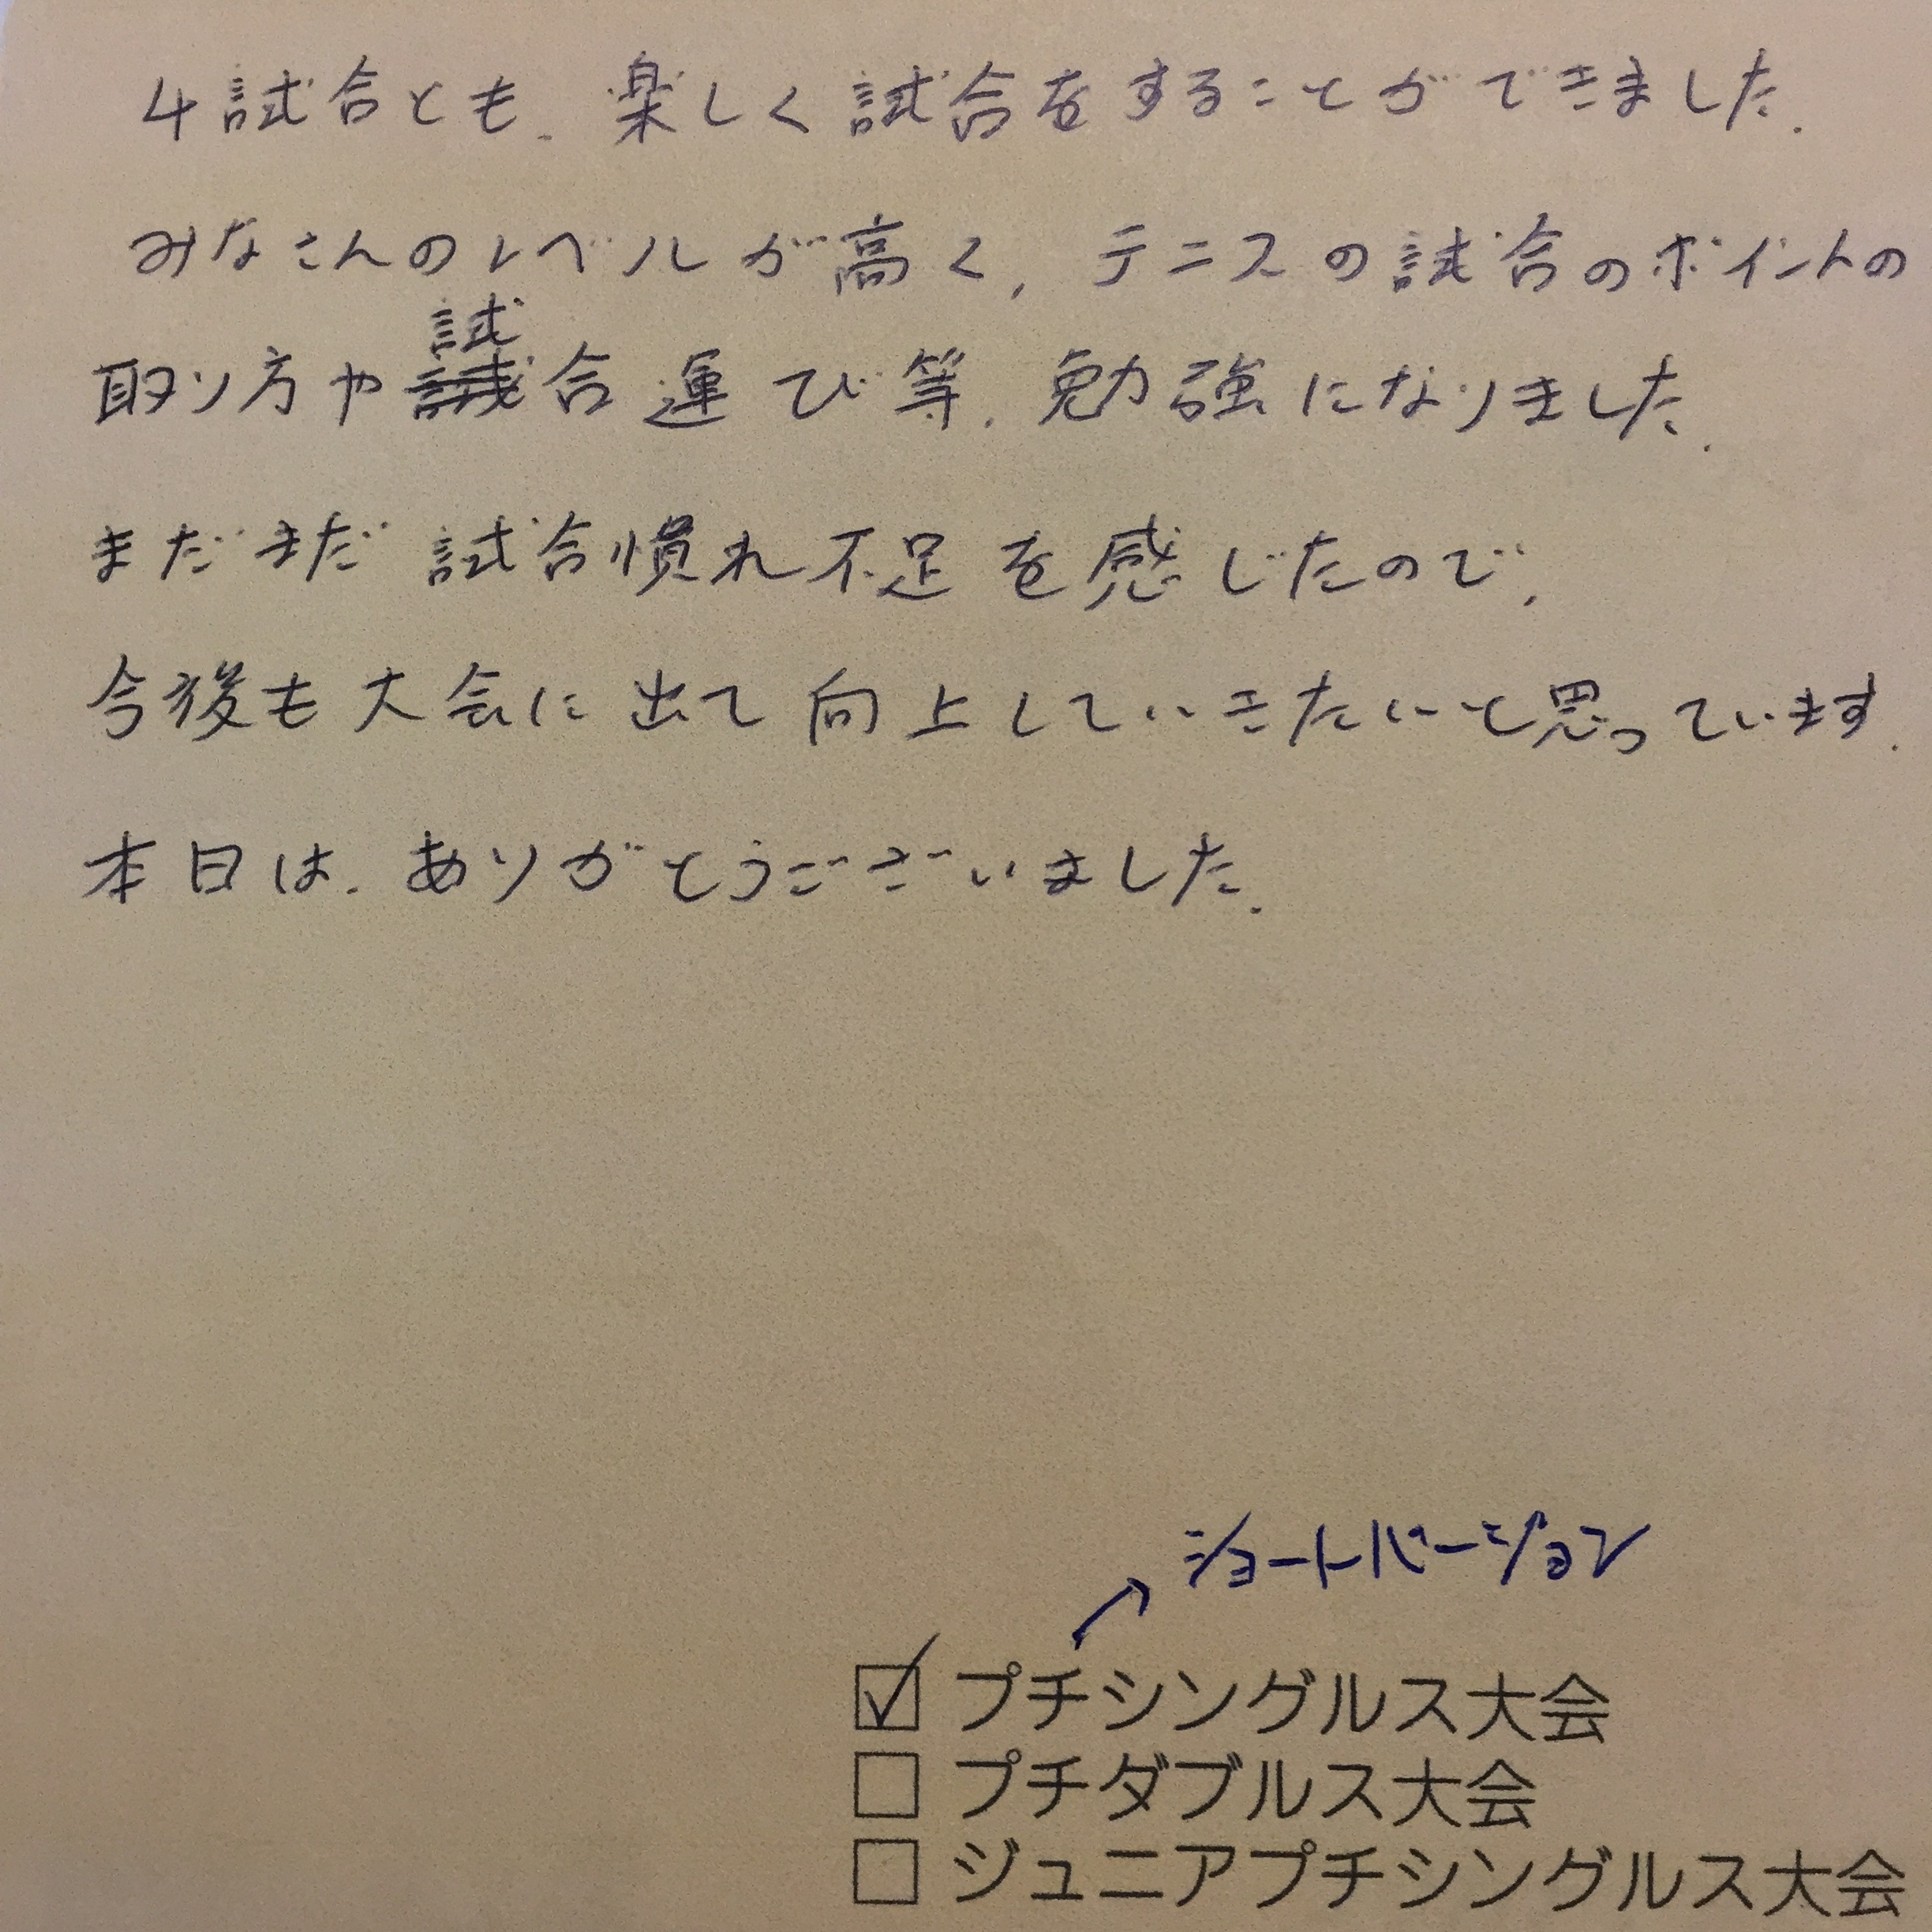 4試合とも、楽しく試合をすることができました。
みなさんのレベルが高く、テニスの試合のポイントの
取り方や試合運び等、勉強になりました。
まだまだ試合慣れ不足を感じたので、
今後も大会に出て向上していきたいと思っています。
本日は、ありがとうございました。
ショートバージョン
プチシングルス大会
プチダブルス大会
ジュニアプチシングルス大会